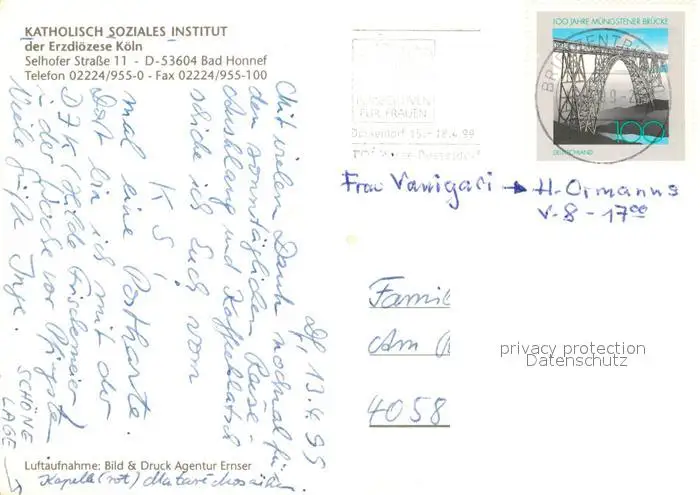 KATHOLISCH SOZIALES INSTITUT
der Erzdiözese Köln
Selhofer Straße 11 - D-53604 Bad Honnef
Telefon 02224/955-0 - Fax 02224/955-100
13.4.99
Mit vielem Dank nochmal für
den sonntäglichen Reise-
ausklang und Kaffeeklatsch
schicke ich Euch vom
KSI
mal eine Postkarte.
Dort bin ich mit der
in der Woche vor Pfingsten
Viele Grüße Inge.
SCHÖNE
LAGE
Luftaufnahme: Bild & Druck Agentur Ernser
Kapelle (rot)
100 JAHRE MÜNGSTENER BRÜCKE
100
DEUTSCHLAND
BRIEFZENTRUM
FÜR FRAUEN
Düsseldorf 15.-18.4.99
Frau Vanigari → H. Ormanns
V-8-17⁰⁰
Famil
Am
4058
privacy protection
Datenschutz